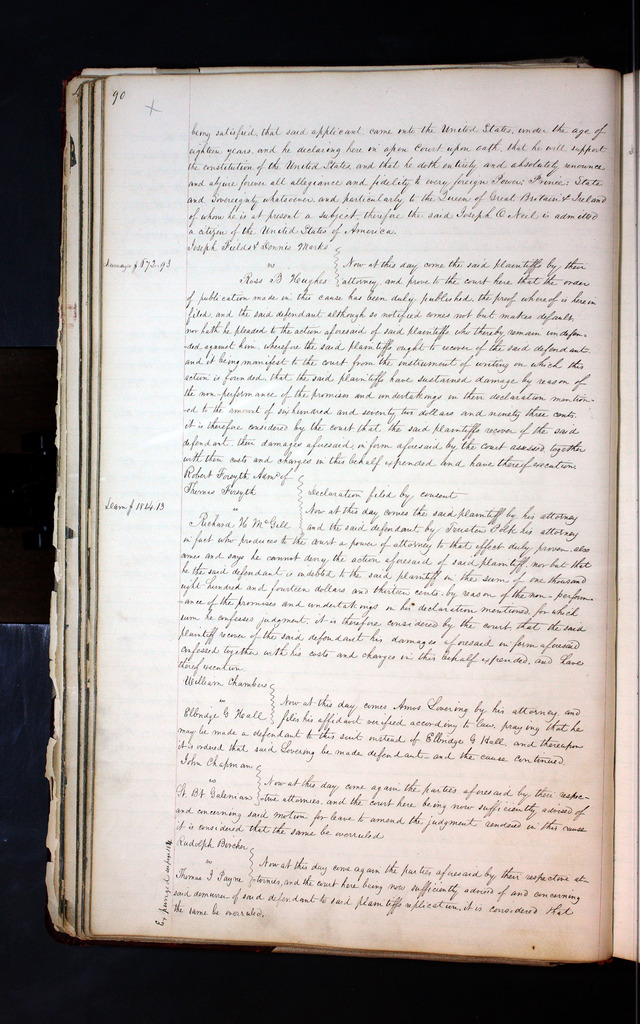 90
being satisfied that said applicant came into the United States, under the age of
eighteen years, and he declaring here in open Court upon oath, that he will support
the constitution of the United States and that he doth entirely and absolutely renounce
and abjure forever all allegiance and fidelity to every foreign Power, Prince, State
and Sovereignty whatsoever and particularly to the Queen of Great Britain & Ireland
of whom he is at present a subject, therefore the said Joseph O Neil is admitted
a citizen of the United States of America.
Joseph Fields & Dennis Marks
Damages $ 672.93
vs
Now at this day come the said plaintiffs by their
Ross B Hughes
attorney, and prove to the court here that the order
of publication made in this cause has been duly published, the proof whereof is herein
filed, and the said defendant although so notified comes not but makes default,
nor hath he pleaded to the action aforesaid of said plaintiffs, who thereby remain undefen-
ded against him, wherefore the said plaintiffs ought to recover of the said defendant
and it being manifest to the court from the instrument of writing on which this
action is founded, that the said plaintiffs have sustained damage by reason of
the non-performance of the promises and undertakings in their declaration mention-
ed to the amount of six hundred and seventy two dollars and ninety three cents.
it is therefore considered by the court that the said plaintiffs recover of the said
defendant their damages aforesaid, in form aforesaid by the court assessed together
with their costs and charges in this behalf expended and have thereof execution.
Robert Forsyth Admr of
Thomas Forsyth
Declaration filed by consent
Dam $ 1814.13
"
Now at this day comes the said plaintiff by his attorney
Richard H McGill
and the said defendant by Trusten Polk his attorney
in fact who produces to the court a power of attorney to that effect duly proven also
comes and says he cannot deny the action aforesaid of said plaintiff, nor but that
he the said defendant is indebted to the said plaintiff in the sum of one thousand
eight hundred and fourteen dollars and thirteen cents by reason of the non-perform-
ance of the promises and undertakings in his declaration mentioned, for which
sum he confesses judgment, it is therefore considered by the court, that the said
plaintiff recover of the said defendant his damages aforesaid in form aforesaid
confessed together with his costs and charges in this behalf expended, and have
thereof execution
William Chambers
"
Now at this day comes Amos Lovering by his attorney, and
Elbridge G Hall
files his affidavit verified according to law, praying that he
may be made a defendant to this suit instead of Elbridge G Hall, and thereupon
it is ordered that said Lovering be made defendant and the cause continued.
John Chapman
vs
Now at this day come again the parties aforesaid by their respec-
St. Bt Galenian
tive attornies, and the court here being now sufficiently advised of
and concerning said motion for leave to amend the judgment rendered in this cause
it is considered that the same be overruled
Rudolph Bircher
vs
Now at this day come again the parties aforesaid by their respective at-
Thomas J Payne
tornies, and the court here being now sufficiently advised of and concerning
said demurrer of said defendant to said plaintiffs replication, it is considered that
the same be overruled.
Expunged see page